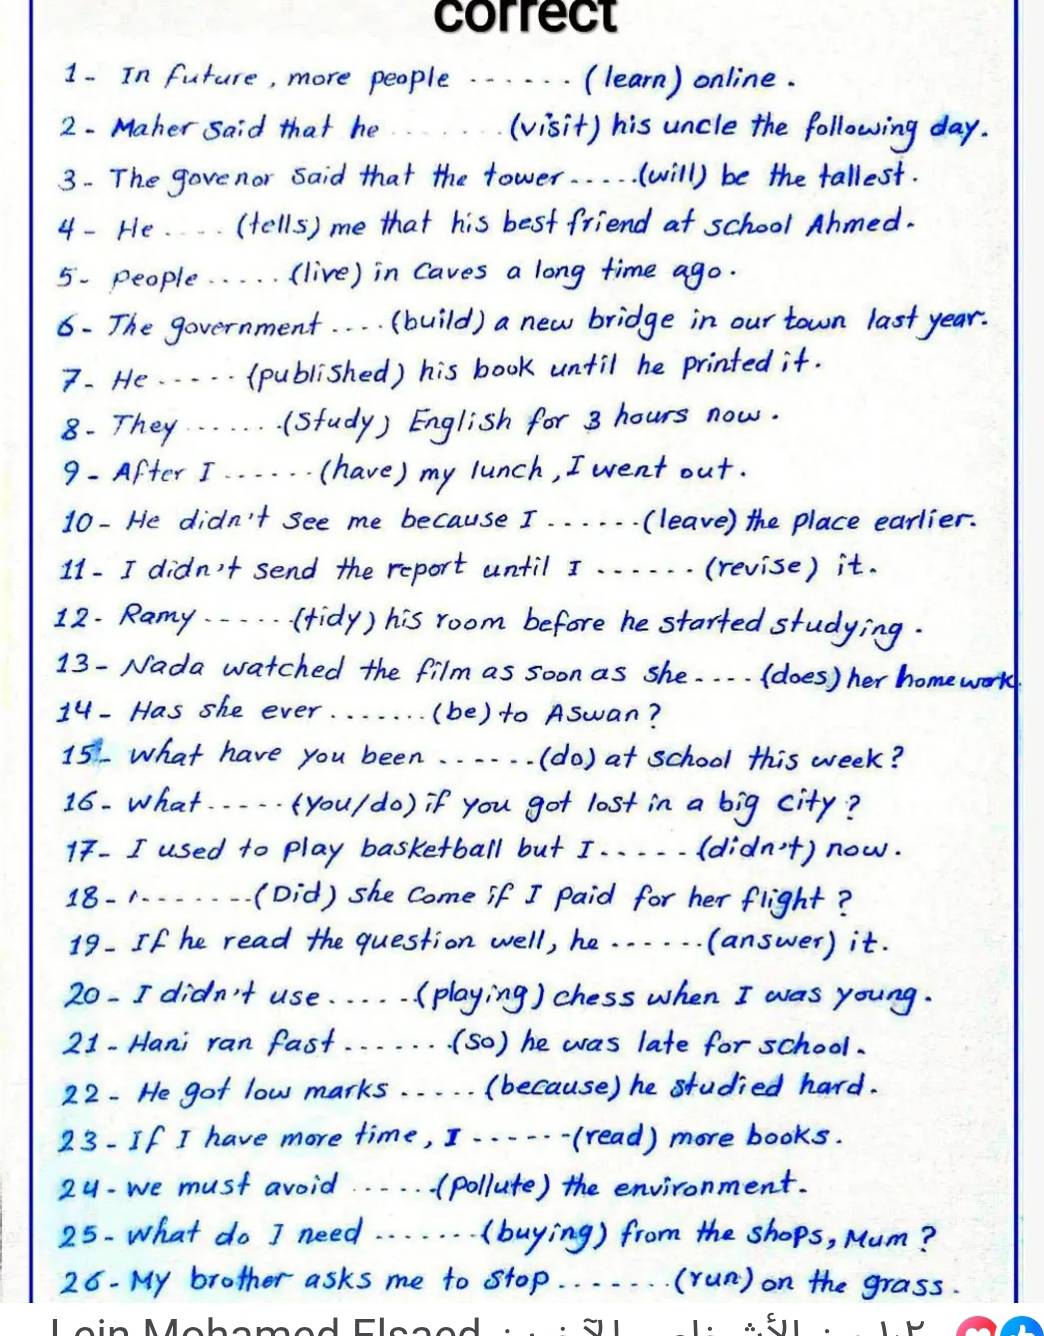 correct
1- In future, more people ...... (learn) online.
2- Maher said that he ....... (visit) his uncle the following day.
3- The govenor said that the tower .....(will) be the tallest.
4- He .... (tells) me that his best friend at school Ahmed.
5- people ..... (live) in caves a long time ago.
6- The government .... (build) a new bridge in our town last year.
7- He ..... (published) his book until he printed it.
8- They .......(study) English for 3 hours now.
9- After I ...... (have) my lunch, I went out.
10- He didn't see me because I ......(leave) the place earlier.
11- I didn't send the report until I ...... (revise) it.
12- Ramy ......(tidy) his room before he started studying.
13- Nada watched the film as soon as she .... (does) her homework.
14- Has she ever .......(be) to Aswan?
15- what have you been ......(do) at school this week?
16- what ..... (you/do) if you got lost in a big city?
17- I used to play basketball but I ..... (didn't) now.
18- ........(Did) she come if I paid for her flight?
19- If he read the question well, he ......(answer) it.
20- I didn't use .....(playing) chess when I was young.
21- Hani ran fast .......(so) he was late for school.
22- He got low marks ..... (because) he studied hard.
23- If I have more time, I ......(read) more books.
24- we must avoid ......(pollute) the environment.
25- what do I need .......(buying) from the shops, Mum?
26- My brother asks me to stop .......(run) on the grass.